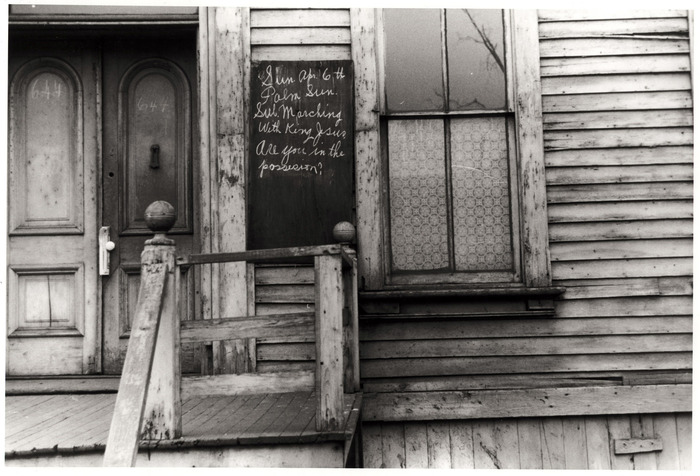 644
644
Sun Apr 6th
Palm Sun.
Sub. Marching
With King Jesus
Are you in the
possesion?